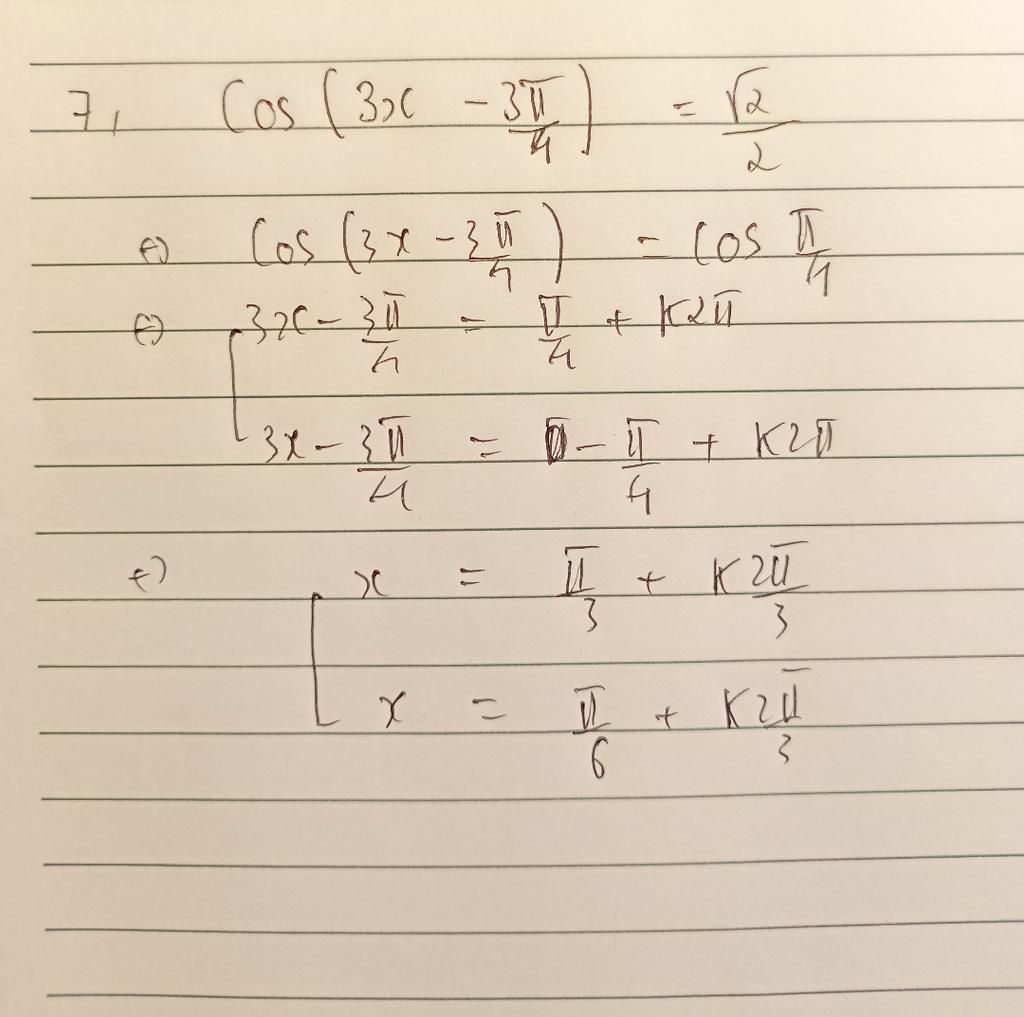 7, Cos (3x - 3π/4) = √2/2
⇔ Cos (3x - 3π/4) = Cos π/4
⇔ [ 3x - 3π/4 = π/4 + K2π
3x - 3π/4 = - π/4 + K2π
⇔ [ x = π/3 + K2π/3
x = π/6 + K2π/3